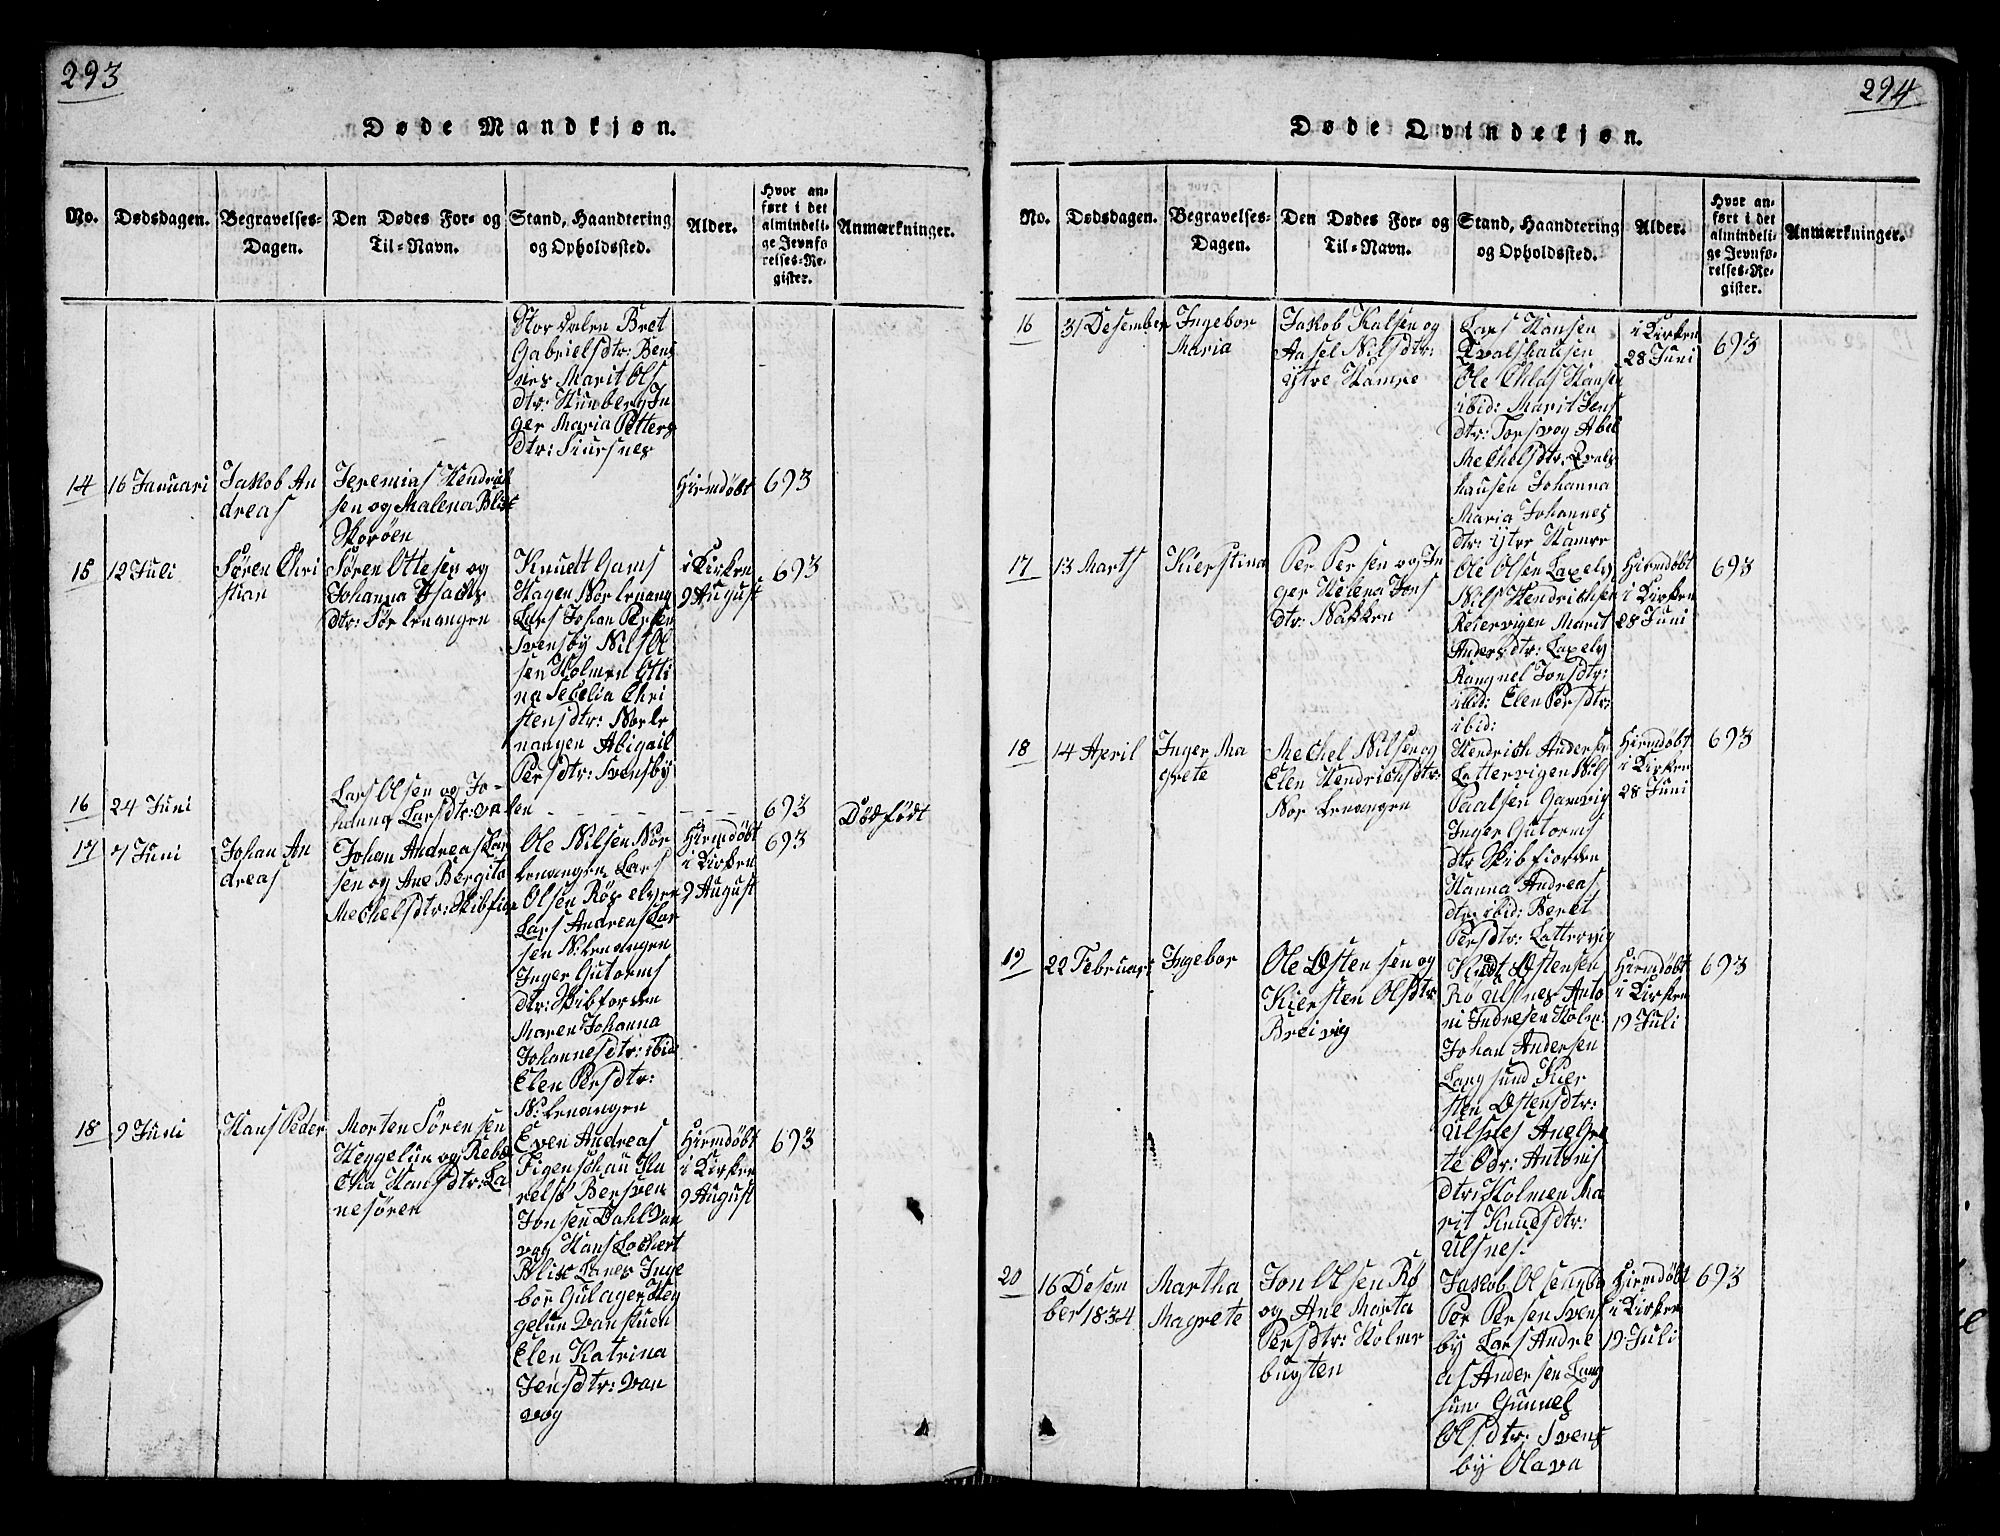 293
Døde Mandkjøn.
No.
Dødsdagen.
Begravelses-
Dagen.
Den Dødes For- og
Til-Navn.
Stand, Haandtering
og Opholdssted.
Alder.
Hvor an-
ført i det
almindeli-
ge Jevnfø
relses-Re-
gister.
Anmærkninger.
Stordalen Bret
Gabrielsdtr: Bens
nes Marit Ols
dtr: Hunberg In
ger Maria Petters
dtr: Siursnes
14
16 Januari
Jakob An
dreas
Jeremias Hendrik
sen og Malena Blix
Skorøen
Hiemdøbt
693
15
12 Juli
Søren Chri
stian
Søren Ottesen og
Johanna Isacks
dtr: Sørlenangen
Knudt Gams
Hagen Norlenang
Lars Johan Persen
Svensby Nils Ol
sen Holmen Otti
na Sebelia Chri
stensdtr: Norle
nangen Abigail
Persdtr: Svensby
i Kirken
9 August
693
16
24 Juni
Lars Olsen og Jo-
hanna Larsdtr: Valen
693
Dødfødt
17
7 Juni
Johan An
dreas
Johan Andreas Lar
sen og Ane Bergita
Mechelsdtr: Skibfior
Ole Nilsen Nor
lenangen Lars
Olsen Røselven
Lars Andreas Lar
sen N: Lenangen
Inger Gutorms
dtr: Skibforden
Maren Johanna
Johannesdtr: ibid
Elen Persdtr:
N: Lenangen
Hiemdøbt
i Kirken
9 August
693
18
9 Juni
Hans Peder
Morten Sørensen
Heggelun og Rebe
cka Hansdtr: La
nesøren
Even Andreas
Figenschau Ka
relsø Bersven
Jonsen Dahl Van
vog Hans Lochert
Blix Lanes Inge
bor Gulager Heg
gelun Vanstuen
Elen Katrina
Jensdtr: Van
vog
Hiemdøbt
i Kirken
9 August
693
294
Døde Qvindekjøn.
No.
Dødsdagen.
Begravelses-
Dagen.
Den Dødes For- og
Til-Navn.
Stand, Haandtering
og Opholdssted.
Alder.
Hvor an-
ført i det
almindeli-
ge Jevnfø-
relses-Re-
gister.
Anmærkninger.
16
31 Desember
Ingebor
Maria
Jakob Kalsen og
Aasel Nilsdtr:
ytre Hamre
Lars Hansen
Kvalshausen
Ole Elias Hansen
ibid: Marit Jens
dtr: Torsvog Abel
Mechelsdtr: Kvals
hausen Johanna
Maria Johannes
dtr: ytre Hamre
i Kirken
28 Juni
693
17
13 Marts
Kierstina
Per Persen og In
ger Helena Jons
dtr: Nakken
Ole Olsen Laxelv
Nils Hendrichsen
Reiervigen Marit
Andersdtr: Laxelv
Rangnel Jonsdtr:
ibid: Elen Persdtr:
ibid:
Hiemdøbt
i Kirken
28 Juni
693
18
14 April
Inger Ma
grete
Mechel Nilsen og
Elen Hendrichsdtr:
Nor Lenangen
Hendrich Andersen
Lattervigen Nils
Paalsen Gamvig
Inger Gutorms
dtr Skibfiorden
Hanna Andreas
dtr: ibid: Beret
Persdtr: Lattervig
Hiemdøbt
i Kirken
28 Juni
693
19
22 Februari
Ingebor
Ole Østensen og
Kiersten Olsdtr:
Breivig
Knudt Østensen
Rø Ulsnes Anto
ni Indresen Holm:
Johan Andersen
Langsund Kier
sten Østensdtr:
Ulsnes Ane Gre
te Odr: Antonis
dtr: Holmen Ma
rit Knudsdtr:
Ulsnes:
Hiemdøbt
i Kirken
19 Juli
693
20
16 Desem
ber 1834
Martha
Magrete
Jon Olsen Rø
og Ane Marta
Persdtr: Holme
bugten
Jakob Olsen
Per Persen Svens
by Lars Andre
as Andersen Lang
sun: Gunnel
Olsdtr: Svens
by Olava
Hiemdøbt
i Kirken
19 Juli
693